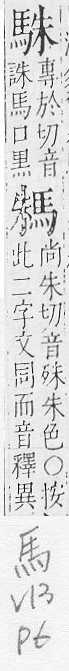 駯
專於切音
誅馬口黑
尚朱切音殊朱色○按
此二字文同而音釋異
馬
V13
P6